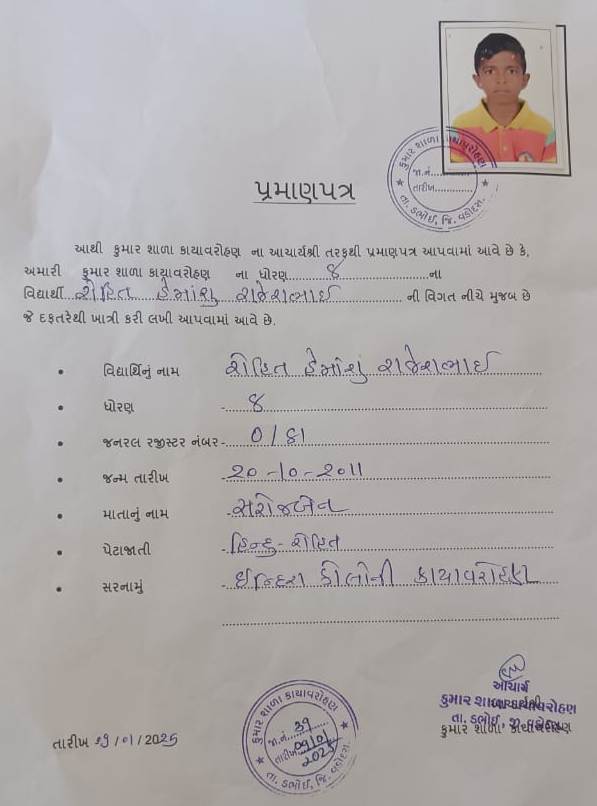 કુમાર શાળા કાયાવરોહણ
જા.નં..............
તારીખ..............
તા. ડભોઈ, જિ. વડોદરા.
પ્રમાણપત્ર
આથી કુમાર શાળા કાયાવરોહણ ના આચાર્યશ્રી તરફથી પ્રમાણપત્ર આપવામાં આવે છે કે,
અમારી કુમાર શાળા કાયાવરોહણ ના ધોરણ..........૪..........ના
વિદ્યાર્થી...રોહિત હેમાંશુ રાજેશભાઈ...ની વિગત નીચે મુજબ છે
જે દફતરેથી ખાત્રી કરી લખી આપવામાં આવે છે.
• વિદ્યાર્થિનું નામ રોહિત હેમાંશું રાજેશભાઈ
• ધોરણ - ૪
• જનરલ રજીસ્ટર નંબર - ૦/૬૧
• જન્મ તારીખ - ૨૦-૧૦-૨૦૧૧
• માતાનું નામ - સરોજબેન
• પેટાજાતી - હિન્દુ - રોહિત
• સરનામું - ઈન્દિરા કોલોની કાયાવરોહણ
આચાર્ય
કુમાર શાળા કાયાવરોહણ
તા. ડભોઈ, જી. વડોદરા
કુમાર શાળા કાયાવરોહણ
કુમાર શાળા કાયાવરોહણ
જા.નં. 39
તારીખ 09/01/2025
તા. ડભોઈ, જિ. વડોદરા.
તારીખ /01/2025